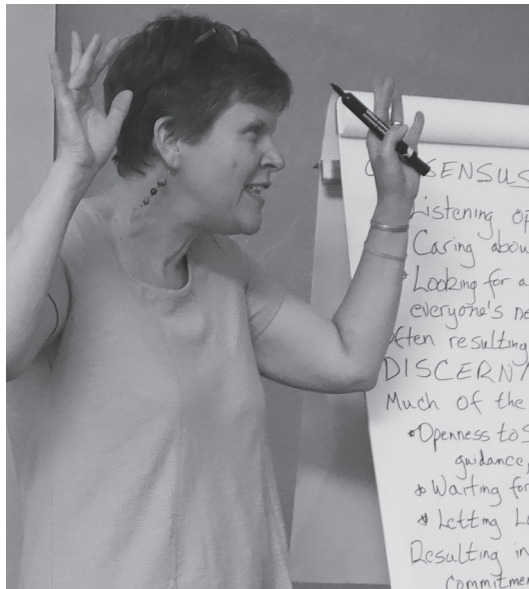 SENSUS
Listening op
Caring abou
Looking for a
everyone's ne
Often resulting
DISCERN
Much of the
Openness to S
guidance,
Waiting for
Letting
Resulting in
commitmen